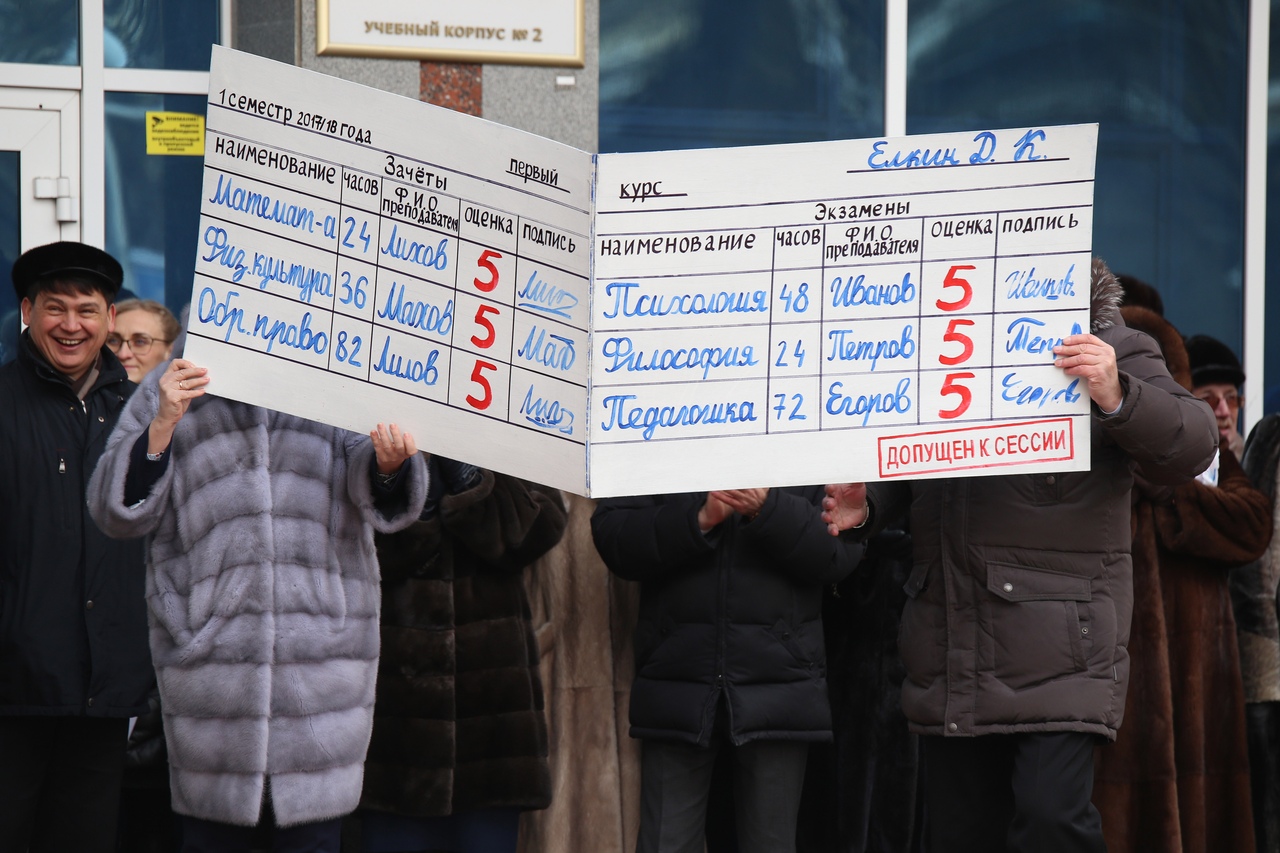 УЧЕБНЫЙ КОРПУС № 2
ВНИМАНИЕ!
1 семестр 2017/18 года
Зачёты первый
наименование часов Ф.И.О преподавателя оценка подпись
Математ-а 24 Лихов 5
Физ.культура 36 Махов 5
Обр.право 82 Лилов 5
Елкин Д. К.
курс
Экзамены
наименование часов Ф.И.О преподавателя оценка подпись
Психология 48 Иванов 5
Философия 24 Петров 5
Педагогика 72 Егоров 5
ДОПУЩЕН К СЕССИИ